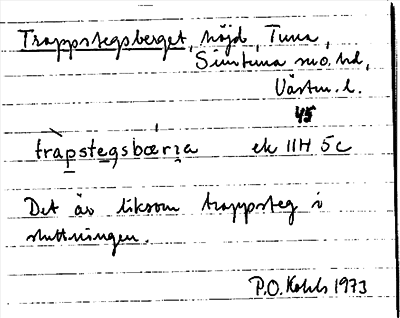 Trappstegsberget, höjd, Tuna,
Simtuna sn o. hd,
Västm. l.
45
trapstegsbœrʒa ek 11H 5c
Det är liksom trappsteg i
sluttningen.
P.O. Kohls 1973